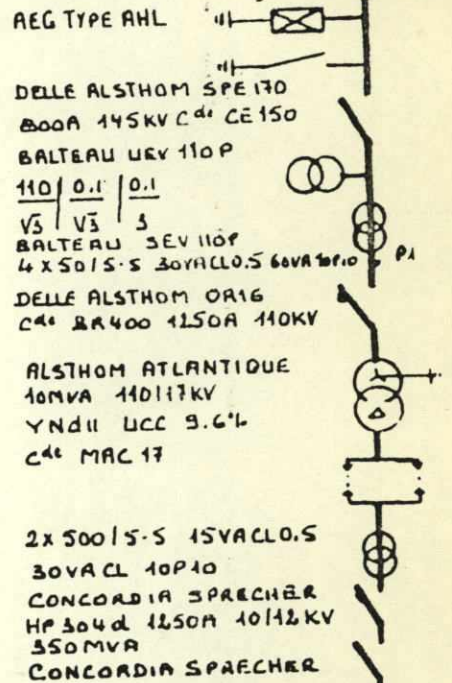 AEG TYPE AHL
DELLE ALSTHOM SPE 170
800A 145KV Cde CE 150
BALTEAU UEV 110P
110 | 0.1 | 0.1
V3 | V3 | 3
BALTEAU SEV 110P
4 x 50/5-5 30VACL0.5 60VA 10P10
P1
DELLE ALSTHOM OR16
Cde BR400 1250A 110KV
ALSTHOM ATLANTIQUE
10MVA 110/17KV
YNd11 UCC 9.6%
Cde MAC 17
2x 500/5-5 15VACL0.5
30VA CL 10P10
CONCORDIA SPRECHER
HP 304d 1250A 10/12 KV
350MVA
CONCORDIA SPRECHER